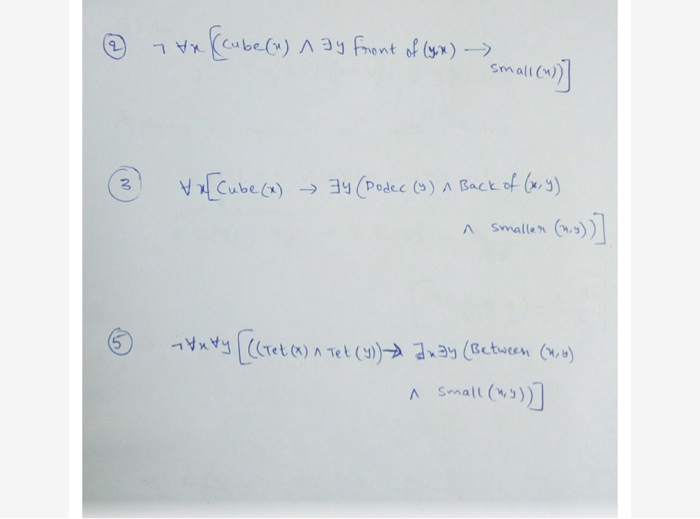 ② ¬ ∀x [(Cube(x) ∧ ∃y Front of (y,x) →
small(x))]
③ ∀x[Cube(x) → ∃y (Dodec (y) ∧ Back of (x,y)
∧ smaller (x,y))]
⑤ ¬∀x∀y [((Tet(x) ∧ Tet(y)) → ∃x∃y (Between (x,y)
∧ small (x,y))]